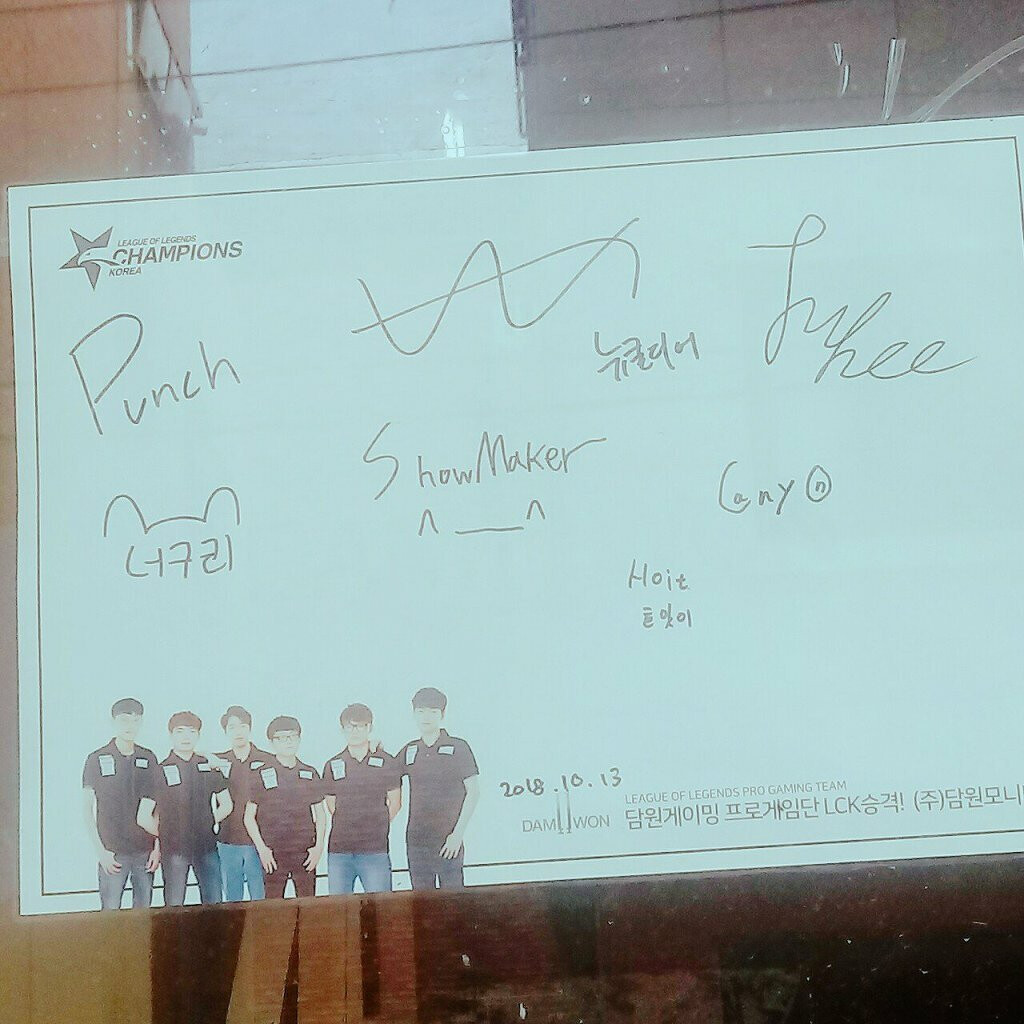 LEAGUE OF LEGENDS
CHAMPIONS
KOREA
Punch
뉴클리어
너구리
ShowMaker
^__^
Canyon
Hoit
호잇이
2018.10.13
LEAGUE OF LEGENDS PRO GAMING TEAM
DAMWON
담원게이밍 프로게임단 LCK승격! (주)담원모니